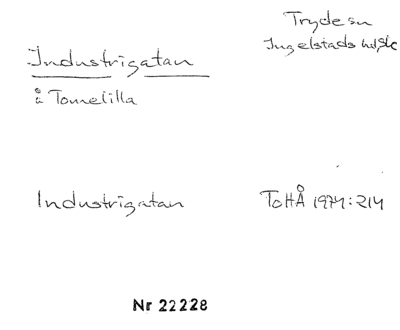 Tryde sn
Ingelstads hd, Sk
Industrigatan
å Tomelilla
Industrigatan
ToHÅ 1974:214
Nr 22228